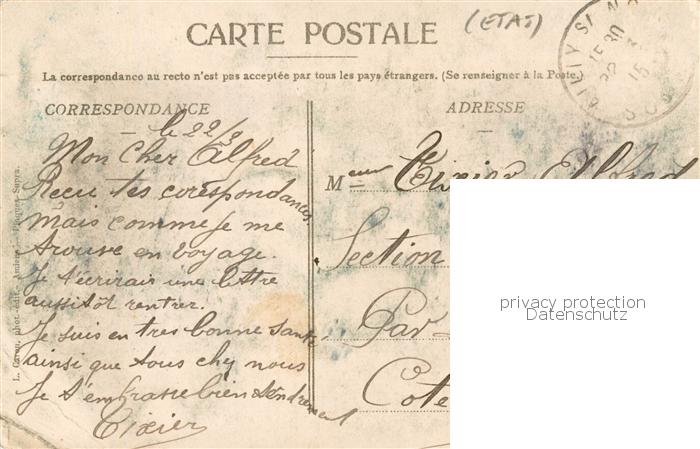 CARTE POSTALE
(ETAT)
La correspondance au recto n'est pas acceptée par tous les pays étrangers. (Se renseigner à la Poste.)
CORRESPONDANCE
le 22/9
Mon Cher Alfred
Reçu tes corespondances
mais comme je me
trouve en voyage.
Je t'écrirais une lettre
aussitôt rentrer.
Je suis en tres bonne santé
ainsi que tous chez nous
Je t'embrasse bien tendrement
Tixier
ADRESSE
Meur Tixier Alfred
Section
Par
Cote
L. Caron, phot.-édit., Amiens.
privacy protection
Datenschutz